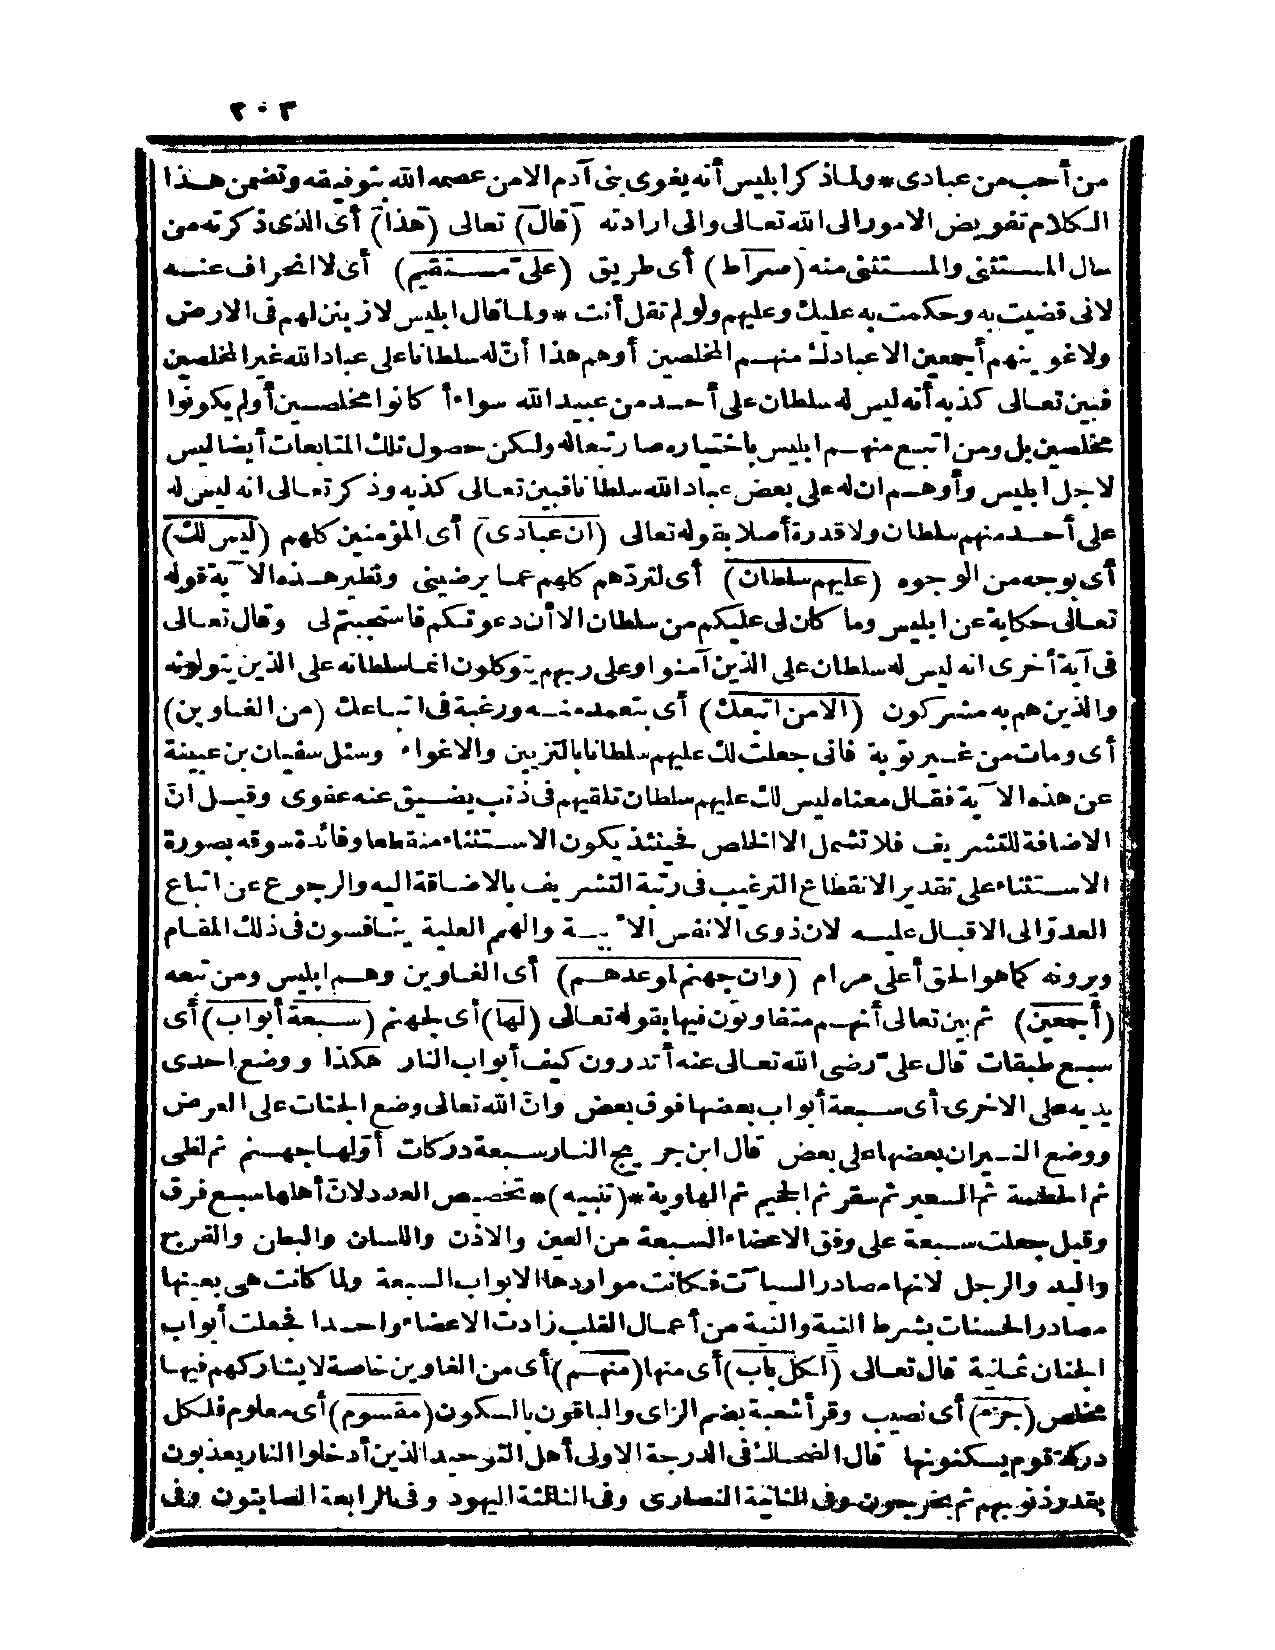 ٢٠٣
من أحب من عبادى * ولما ذكر ابليس أنه يغوى بنى آدم الا من عصمه الله بتوفيقه وتضمن هذا
الكلام تفويض الامور الى الله تعالى والى ارادته (قال) تعالى (هذا) أى الذى ذكرته من
حال المستثنى والمستثنى منه (صراط) أى طريق (علىّ مستقيم) أى لا انحراف عنه
لانى قضيت به وحكمت به عليك وعليهم ولو لم تقل أنت * ولما قال ابليس لازينن لهم فى الارض
ولاغوينهم أجمعين الا عبادك منهم المخلصين أوهم هذا أنّ له سلطانا على عباد الله غير المخلصين
فبين تعالى كذبه أنه ليس له سلطان على أحد من عبيد الله سواء أكانوا مخلصين أو لم يكونوا
مخلصين بل ومن اتبع منهم ابليس باختياره صار تبعا له ولكن حصول تلك المتابعات أيضا ليس
لاجل ابليس وأوهم ان له على بعض عباد الله سلطانا فبين تعالى كذبه وذكر تعالى انه ليس له
على أحد منهم سلطان ولا قدرة أصلا بقوله تعالى (ان عبادى) أى المؤمنين كلهم (ليس لك)
أى بوجه من الوجوه (عليهم سلطان) أى لتردّهم كلهم عما يرضينى ونظير هذه الآية قوله
تعالى حكاية عن ابليس وما كان لى عليكم من سلطان الا أن دعوتكم فاستجبتم لى وقال تعالى
فى آية أخرى انه ليس له سلطان على الذين آمنوا وعلى ربهم يتوكلون انما سلطانه على الذين يتولونه
والذين هم به مشركون (الا من اتبعك) أى بتعمد منه ورغبة فى اتباعك (من الغاوين)
أى ومات من غير توبة فانى جعلت لك عليهم سلطانا بالتزيين والاغواء وسئل سفيان بن عيينة
عن هذه الآية فقال معناه ليس لك عليهم سلطان تلقيهم فى ذنب يضيق عنه عفوى وقيل انّ
الاضافة للتشريف فلا تشمل الا الخلص فحينئذ يكون الاستثناء منقطعا وفائدة سوقه بصورة
الاستثناء على تقدير الانقطاع الترغيب فى رتبة التشريف بالاضافة اليه والرجوع عن اتباع
العدوّ الى الاقبال عليه لان ذوى الانفس الأبية والهمم العلية ينافسون فى ذلك المقام
ويرونه كما هو الحق أعلى مرام (وان جهنم لموعدهم) أى الغاوين وهم ابليس ومن تبعه
(أجمعين) ثم بين تعالى أنهم متفاوتون فيها بقوله تعالى (لها) أى لجهنم (سبعة أبواب) أى
سبع طبقات قال علىّ رضى الله تعالى عنه أتدرون كيف أبواب النار هكذا ووضع احدى
يديه على الاخرى أى سبعة أبواب بعضها فوق بعض وانّ الله تعالى وضع الجنات على العرض
ووضع النيران بعضها على بعض قال ابن جريج النار سبعة دركات أوّلها جهنم ثم لظى
ثم الحطمة ثم السعير ثم سقر ثم الجحيم ثم الهاوية * (تنبيه) * تخصيص العدد لانّ أهلها سبع فرق
وقيل جعلت سبعة على وفق الاعضاء السبعة من العين والاذن واللسان والبطن والفرج
واليد والرجل لانها مصادر السيآت فكانت مواردها الابواب السبعة ولما كانت هى بعينها
مصادر الحسنات بشرط النية والنية من أعمال القلب زادت الاعضاء واحدا فجعلت أبواب
الجنان ثمانية قال تعالى (لكل باب) أى منها (منهم) أى من الغاوين خاصة لا يشاركهم فيها
مخلص (جزء) أى نصيب وقرأ شعبة بضم الزاى والباقون بالسكون (مقسوم) أى معلوم فلكل
دركة قوم يسكنونها قال الضحاك فى الدرجة الاولى أهل التوحيد الذين أدخلوا النار يعذبون
بقدر ذنوبهم ثم يخرجون وفى الثانية النصارى وفى الثالثة اليهود وفى الرابعة الصابئون وفى